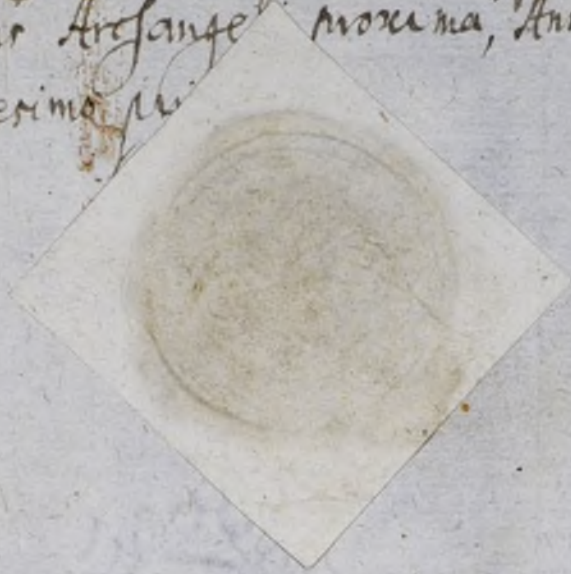 Archangel proxima, An
esimo pri